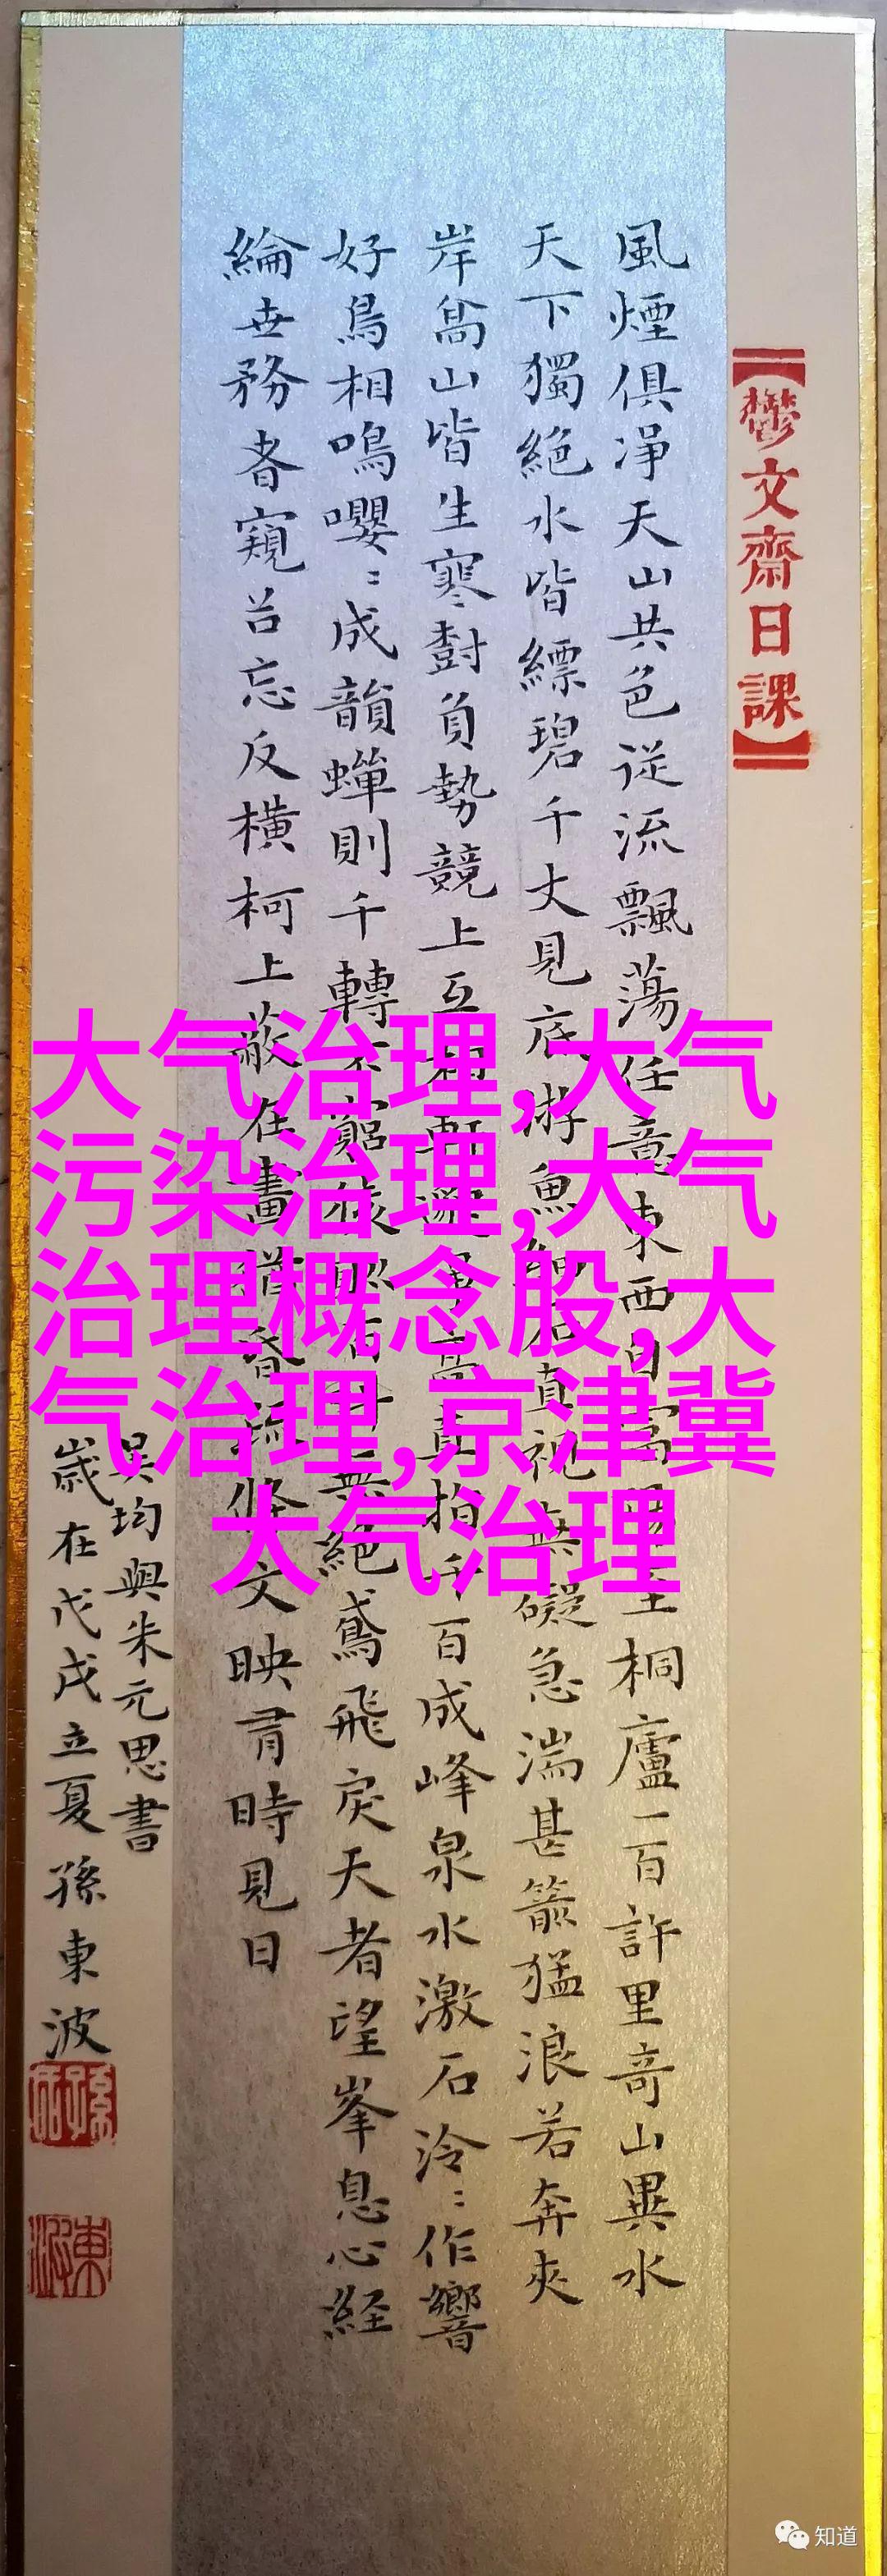 【鬱文齋日課】
風煙俱凈天山共色従流飄蕩任意東西自富陽至桐廬一百許里奇山異水
天下獨絕水皆縹碧千丈見底游魚細石直視無礙急湍甚箭猛浪若奔夾
岸高山皆生寒樹負勢競上互相軒邈爭高直指千百成峰泉水激石泠〻作響
好鳥相鳴嚶〻成韻蟬則千轉不窮猿則百叫無絕鳶飛戾天者望峯息心経
綸世務者窺谷忘反橫柯上蔽在晝猶昏疏條交映有時見日
吳均與朱元思書
歲在戊戌立夏孫東波
大气治理,大气
污染治理,大气
治理概念股,大
气治理,京津冀
大气治理
知道